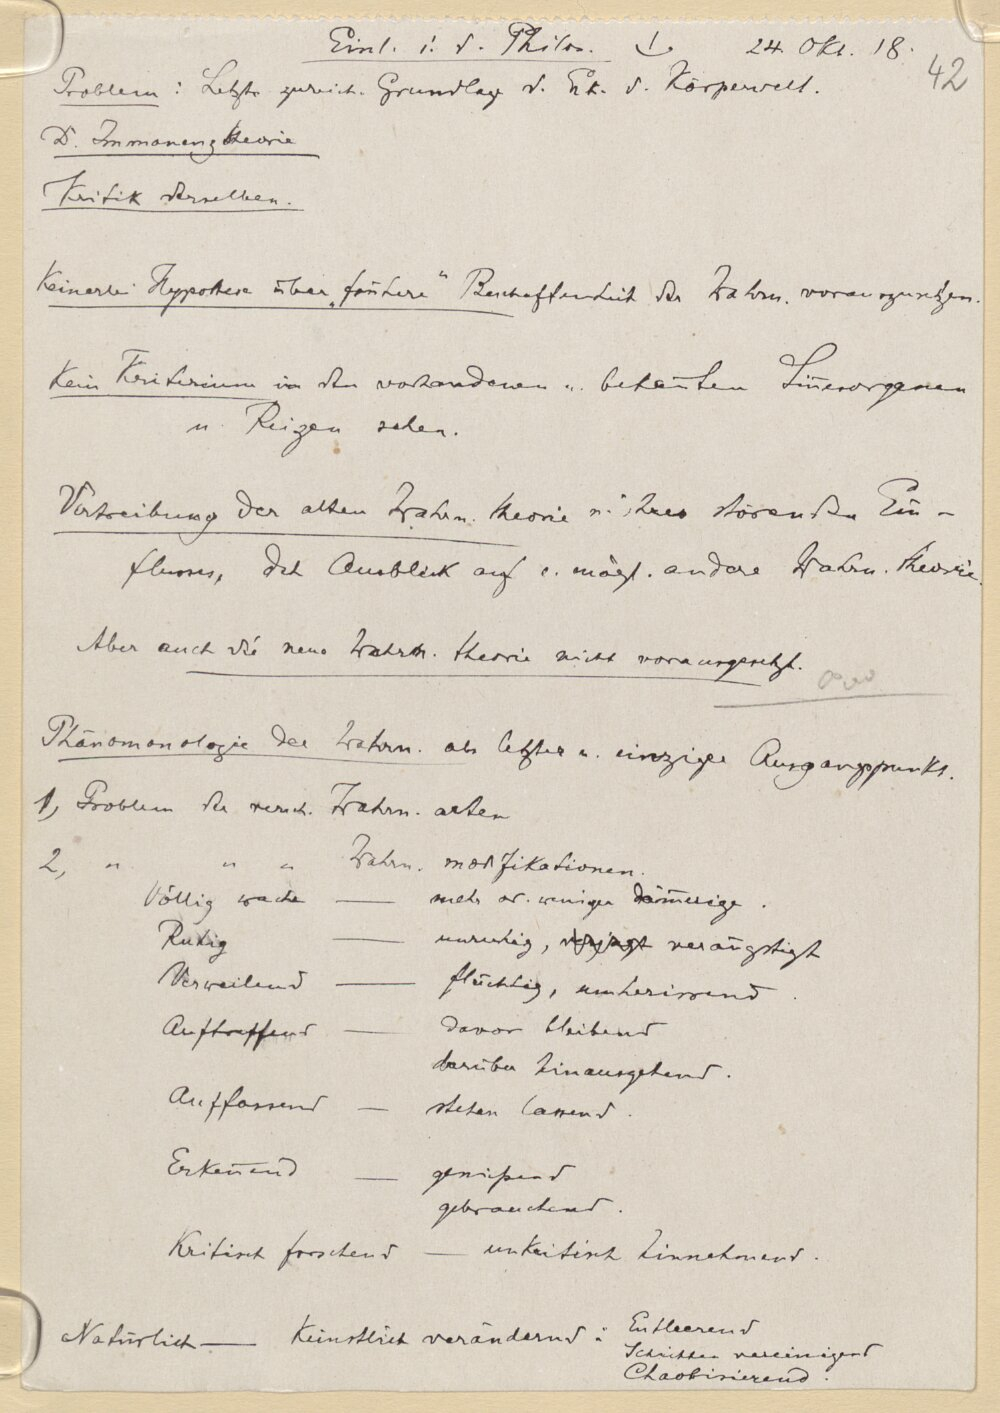 Einl. i. d. Philos. 24. Okt. 18.
42
Problem: Letzte zureich. Grundlage d. Erk. d. Körperwelt.
D. Immanenztheorie
Kritik derselben.
Keinerlei Hypothese über „frühere“ Beschaffenheit der Wahrn. vorauszusetzen.
Kein Kriterium in den vorhandenen u. bekañten Siñesorganen
u. Reizen sehen.
Vertreibung der alten Wahrn. theorie u. ihres störenden Ein-
flusses, det Ausblick auf e. mögl. andere Wahrn. theorie.
Aber auch die neue Wahrn. theorie nicht vorausgesetzt.
Phänomenologie der Wahrn. als letzter u. einziger Ausgangspunkt.
1, Problem der versch. Wahrn. arten
2, " " " Wahrn. modifikationen.
Völlig wache — mehr od. weniger däm̃erige.
Ruhig — unruhig, verängstigt
Verweilend — flüchtig, umherirrend.
Auftreffend — davor bleibend
darüber hinausgehend.
Auffassend — stehen lassend.
Erkeñend — genießend
gebrauchend.
Kritisch forschend — unkritisch hinnehmend.
Natürlich — Künstlich verändernd: Entleerend
Schichten vereinigend
Chaotisierend.